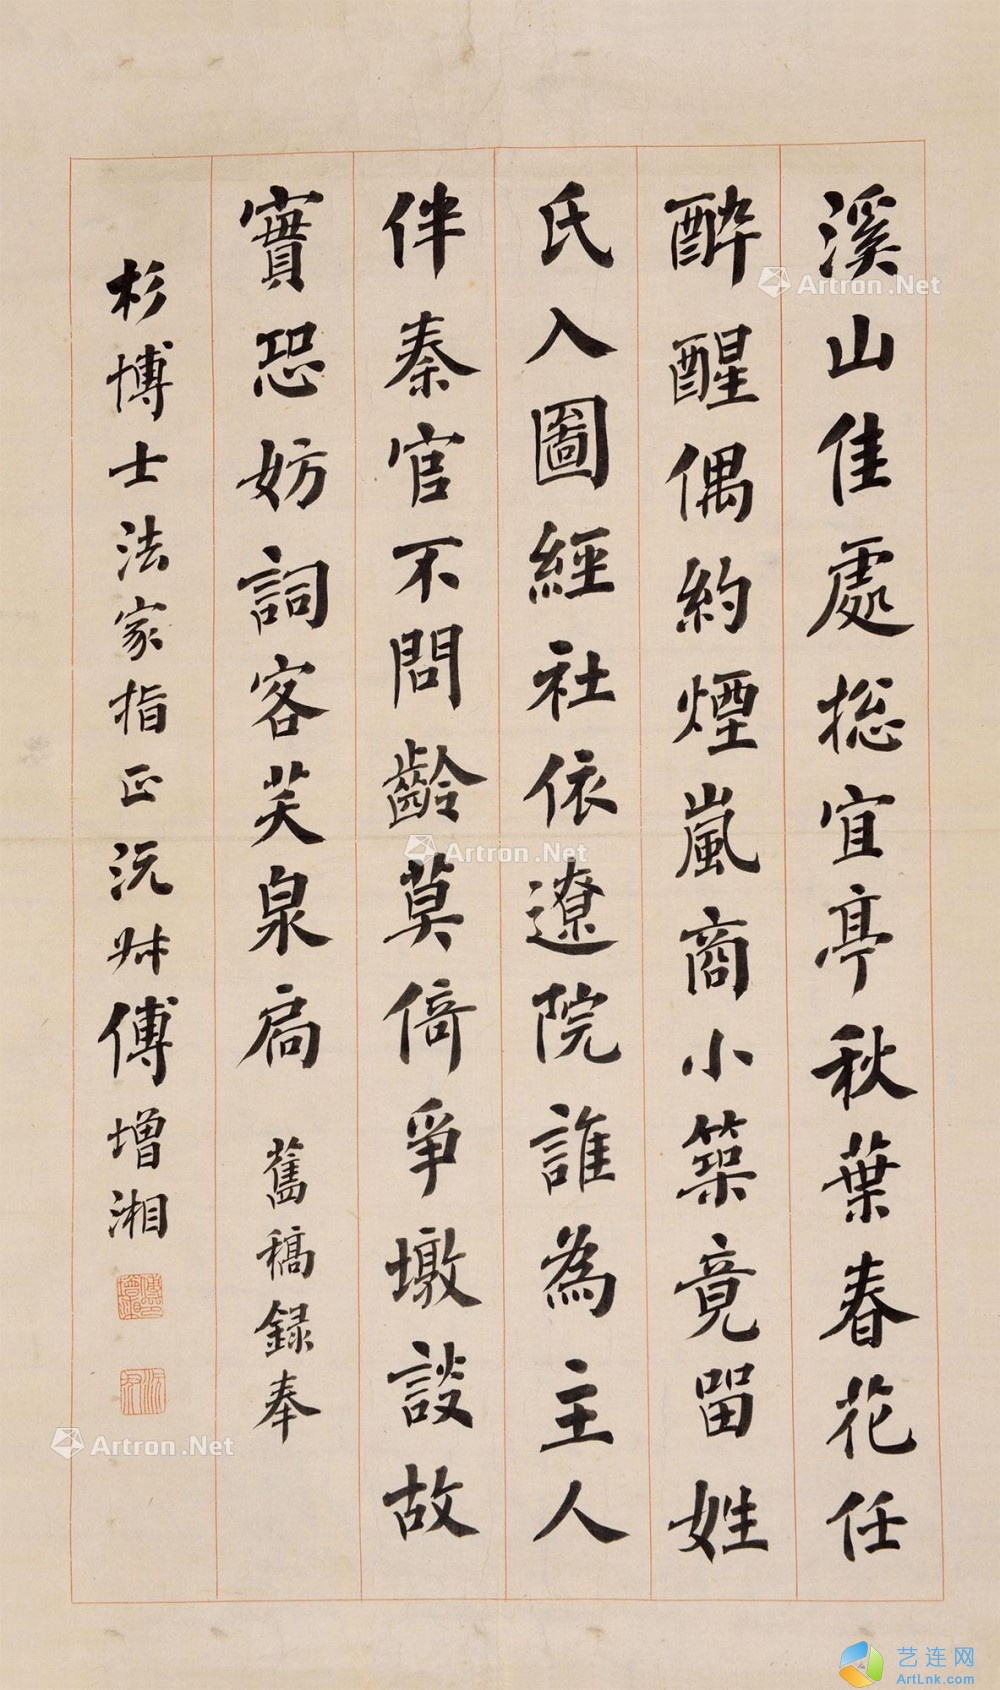 溪山佳處捴宜亭秋葉春花任
醉醒偶約煙嵐商小築竟留姓
氏入圖經社依遼院誰為主人
伴秦官不問齡莫倚爭墩談故
實恐妨詞客芙泉扃 舊稿録奉
杉博士法家指正沅叔傅增湘
Artron.Net
Artron.Net
Artron.Net
艺连网
ArtLnk.com